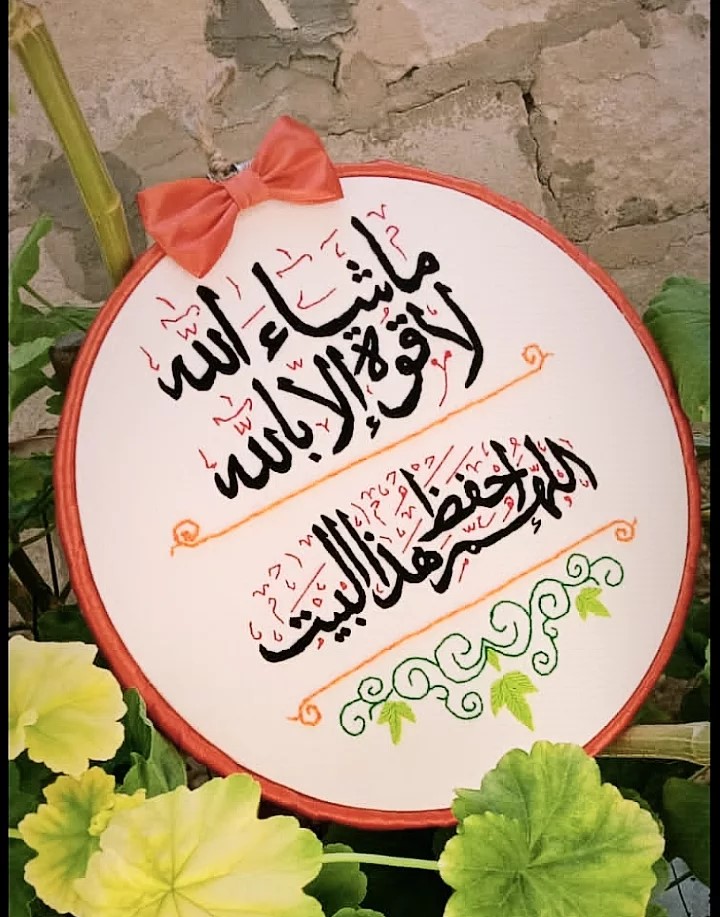 ما شاء الله
لا قوة إلا بالله
اللهم احفظ
هذا البيت